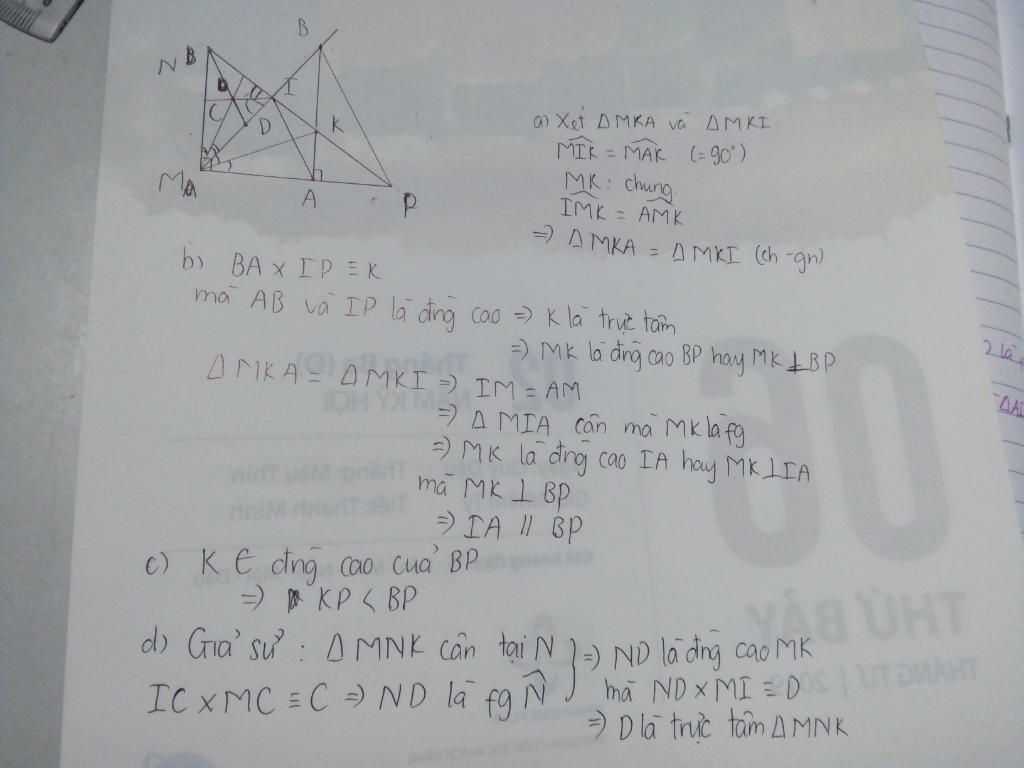 B
N
I
C
D
K
M
A
P
a) Xét ΔMKA và ΔMKI
MIK = MAK (=90°)
MK : chung
IMK = AMK
=> ΔMKA = ΔMKI (ch-gn)
b) BA x IP ≡ K
mà AB và IP là đg̀ cao => K là trực tâm
=> MK là đg̀ cao BP hay MK ⊥ BP
ΔMKA = ΔMKI => IM = AM
=> ΔMIA cân mà MK là fg
=> MK là đg̀ cao IA hay MK ⊥ IA
mà MK ⊥ BP
=> IA // BP
c) K ∈ đg̀ cao của BP
=> KP < BP
d) Giả sử : ΔMNK cân tại N
IC x MC ≡ C => ND là fg N
=> ND là đg̀ cao MK
mà ND x MI ≡ D
=> D là trực tâm ΔMNK
06
02
Tháng Ba (Đ)
NĂM KỶ HỢI
Tháng: Mậu Thìn
Tiết: Thanh Minh
THỨ BẢY
THÁNG TƯ | 2019